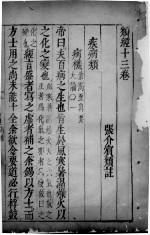 類經十三卷
張介賓類註
疾病類
病機
帝曰夫百病之生也皆生於風寒暑濕燥火以
之化之變也
經言盛者寫之虛者補之余錫以方士而
方士用之尚未能十全余欲令要道必行桴鼓